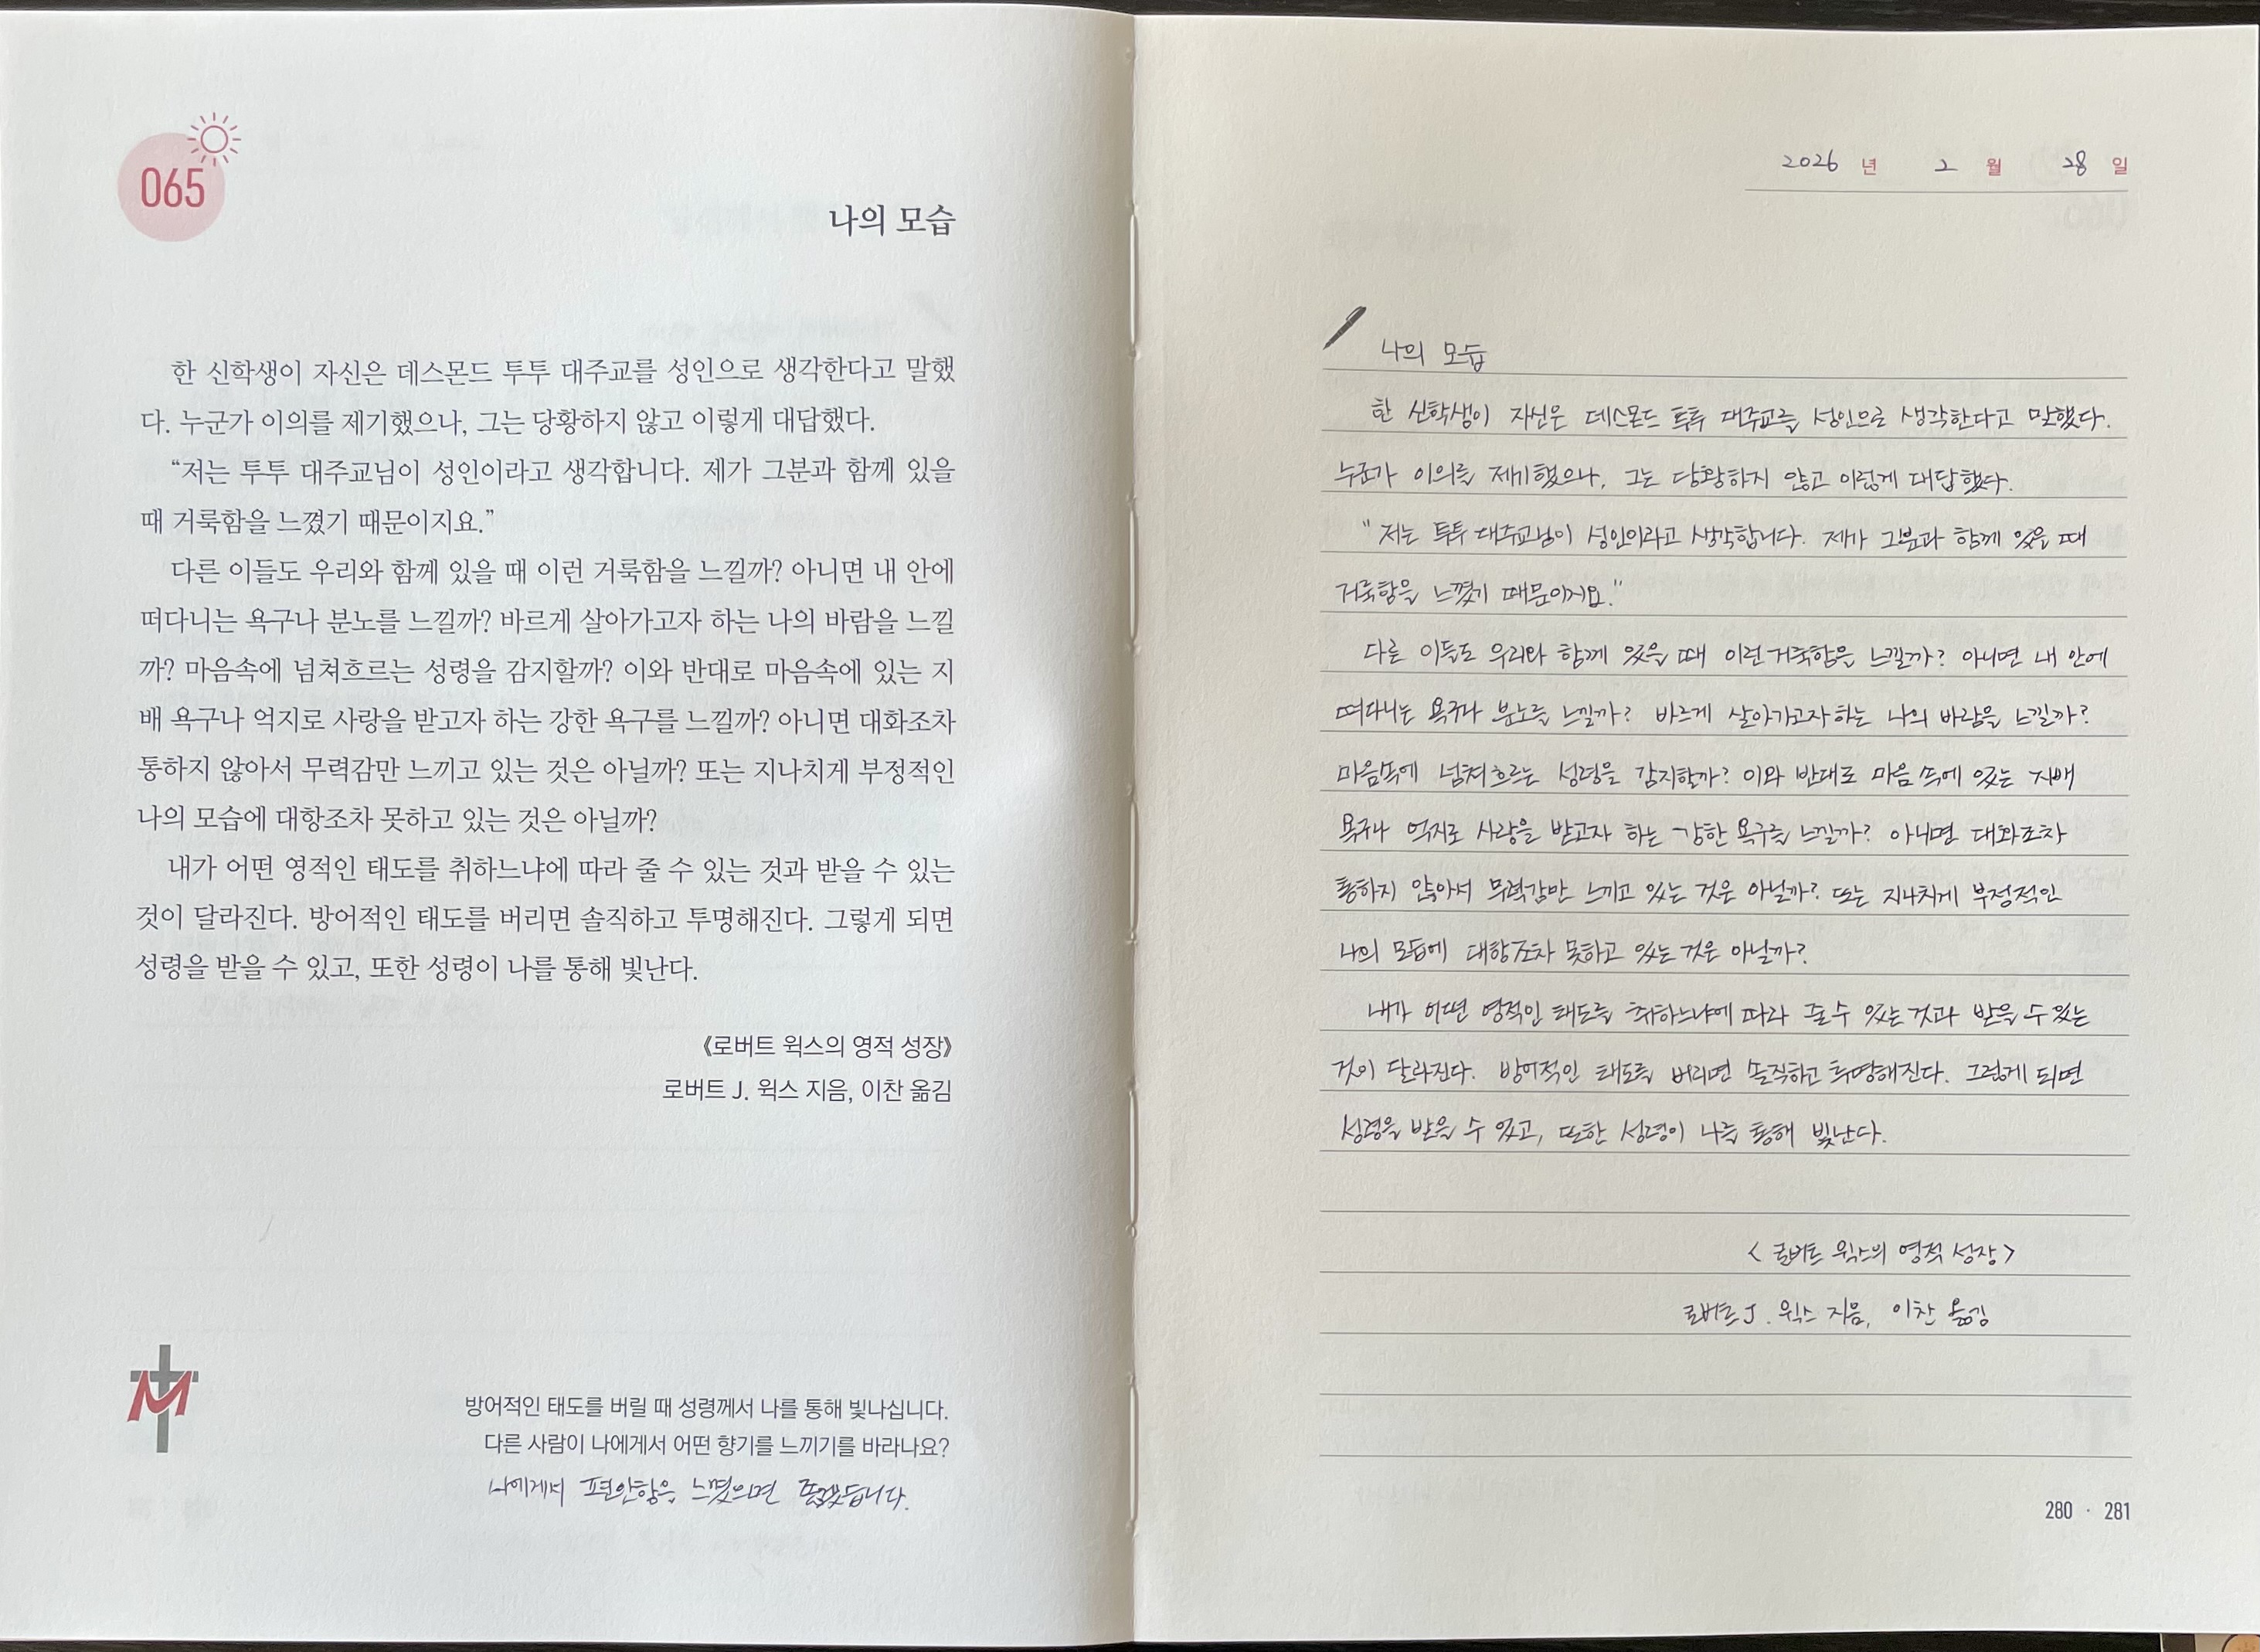 065
나의 모습
한 신학생이 자신은 데스몬드 투투 대주교를 성인으로 생각한다고 말했
다. 누군가 이의를 제기했으나, 그는 당황하지 않고 이렇게 대답했다.
“저는 투투 대주교님이 성인이라고 생각합니다. 제가 그분과 함께 있을
때 거룩함을 느꼈기 때문이지요.”
다른 이들도 우리와 함께 있을 때 이런 거룩함을 느낄까? 아니면 내 안에
떠다니는 욕구나 분노를 느낄까? 바르게 살아가고자 하는 나의 바람을 느낄
까? 마음속에 넘쳐흐르는 성령을 감지할까? 이와 반대로 마음속에 있는 지
배 욕구나 억지로 사랑을 받고자 하는 강한 욕구를 느낄까? 아니면 대화조차
통하지 않아서 무력감만 느끼고 있는 것은 아닐까? 또는 지나치게 부정적인
나의 모습에 대항조차 못하고 있는 것은 아닐까?
내가 어떤 영적인 태도를 취하느냐에 따라 줄 수 있는 것과 받을 수 있는
것이 달라진다. 방어적인 태도를 버리면 솔직하고 투명해진다. 그렇게 되면
성령을 받을 수 있고, 또한 성령이 나를 통해 빛난다.
《로버트 윅스의 영적 성장》
로버트 J. 윅스 지음, 이찬 옮김
방어적인 태도를 버릴 때 성령께서 나를 통해 빛나십니다.
다른 사람이 나에게서 어떤 향기를 느끼기를 바라나요?
나에게서 편안함을 느꼈으면 좋겠습니다.
2026 년 2 월 28 일
나의 모습
한 신학생이 자신은 데스몬드 투투 대주교를 성인으로 생각한다고 말했다.
누군가 이의를 제기했으나, 그는 당황하지 않고 이렇게 대답했다.
"저는 투투 대주교님이 성인이라고 생각합니다. 제가 그분과 함께 있을 때
거룩함을 느꼈기 때문이지요."
다른 이들도 우리와 함께 있을 때 이런 거룩함을 느낄까? 아니면 내 안에
떠다니는 욕구나 분노를 느낄까? 바르게 살아가고자 하는 나의 바람을 느낄까?
마음속에 넘쳐흐르는 성령을 감지할까? 이와 반대로 마음 속에 있는 지배
욕구나 억지로 사랑을 받고자 하는 강한 욕구를 느낄까? 아니면 대화조차
통하지 않아서 무력감만 느끼고 있는 것은 아닐까? 또는 지나치게 부정적인
나의 모습에 대항조차 못하고 있는 것은 아닐까?
내가 어떤 영적인 태도를 취하느냐에 따라 줄 수 있는 것과 받을 수 있는
것이 달라진다. 방어적인 태도를 버리면 솔직하고 투명해진다. 그렇게 되면
성령을 받을 수 있고, 또한 성령이 나를 통해 빛난다.
< 로버트 윅스의 영적 성장 >
로버트 J. 윅스 지음, 이찬 옮김
280 · 281